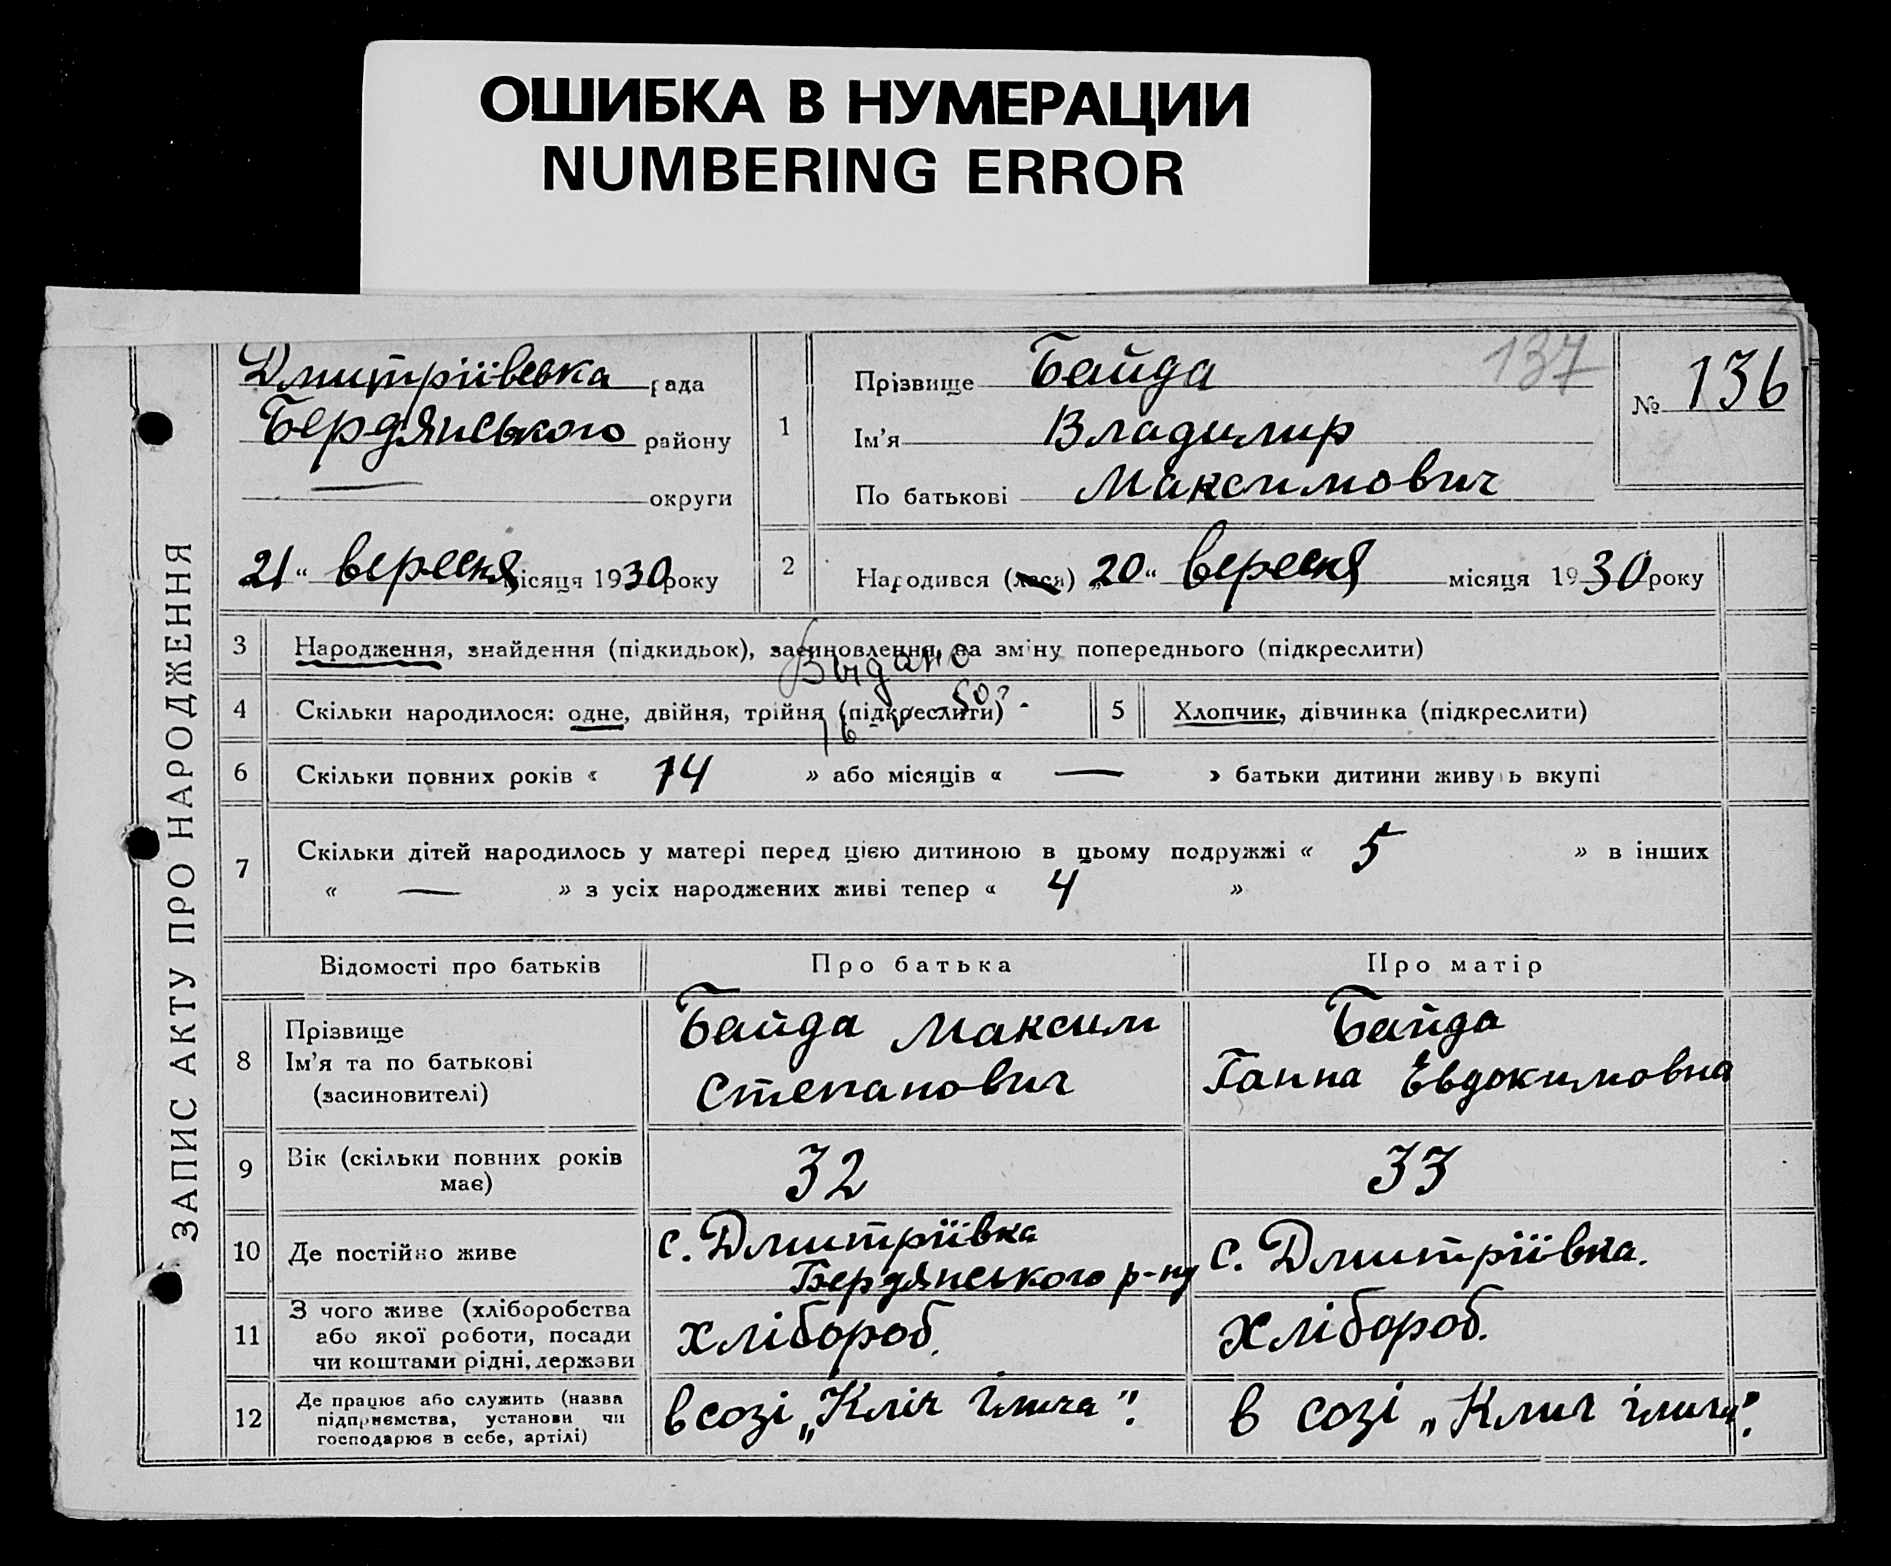 ОШИБКА В НУМЕРАЦИИ
NUMBERING ERROR
ЗАПИС АКТУ ПРО НАРОДЖЕННЯ
Дмитріївська рада
Бердянського району
— округи
21“ вересня місяця 1930 року
1
Прізвище Байда
137
Ім’я Владимир
По батькові Максимович
№ 136
2
Народився (лася) „20“ вересня місяця 1930 року
3 Народження, знайдення (підкидьок), засиновлення, на зміну попереднього (підкреслити)
Выдано
4 Скільки народилося: одне, двійня, трійня (підкреслити)
5 Хлопчик, дівчинка (підкреслити)
6 Скільки повних років « 14 » або місяців « — » батьки дитини живуть вкупі
7 Скільки дітей народилось у матері перед цією дитиною в цьому подружжі « 5 » в інших
« — » з усіх народжених живі тепер « 4 »
Відомості про батьків Про батька Про матір
8
Прізвище
Ім’я та по батькові
(засиновителі)
Байда Максим
Степанович
Байда
Ганна Евдокимовна
9
Вік (скільки повних років
має)
32
33
10 Де постійно живе
с. Дмитріївка
Бердянського р-ну
с. Дмитріївка.
11
З чого живе (хліборобства
або якої роботи, посади
чи коштами рідні, держави
хлібороб.
хлібороб.
12
Де працює або служить (назва
підприємства, установи чи
господарює в себе, артілі)
в созі „Кліч Ілича“.
в созі „Клич Ілича“.